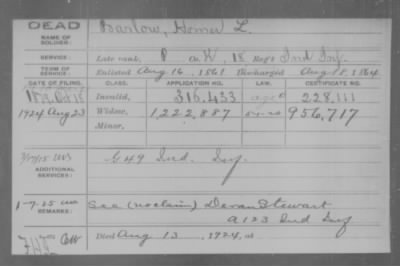 DEAD
NAME OF SOLDIER: Barlow, Homer L.
SERVICE: Late rank, P Co. K, 18 Reg't Ind Inf.
TERM OF SERVICE: Enlisted Aug 16, 1861 Discharged Aug 18, 1864
DATE OF FILING. CLASS. APPLICATION NO. LAW. CERTIFICATE NO.
Invalid, 316,433 228,111
1924 Aug 23 Widow, 1,222,887 956,717
Minor,
ADDITIONAL SERVICES: G 49 Ind. Inf.
REMARKS: See (no claim) Devan Stewart
A 123 Ind Inf
Died Aug 13, 1924, at